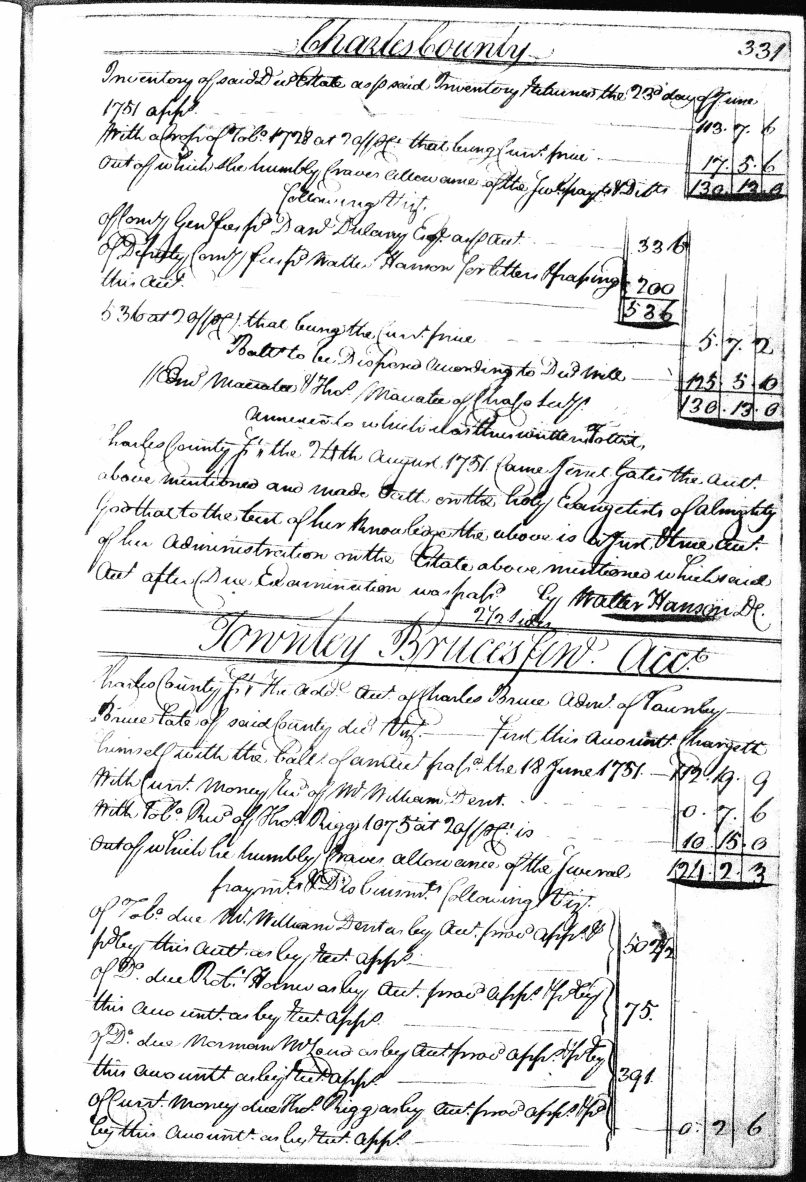 Charles County 331
Inventory of said Decd Estate as p said Inventory returned the 23d day of June
1751 appd 113. 7. 6
With a Crop of Tobo 1728 at 2d p lb that being Curr. price 17. 5. 6
Out of which she humbly Craves allowance of the payts & Disbts 130. 13. 0
following Viz.
Of Comy Genl fees pd Danl Dulany Esq. as p acct. 336
Of Deputy Comy fees pd Walter Hanson for letters & passing
this acct. 200
536
536 at 2d p lb that being the Curr. price 5. 7. 2
Balle to be Disposed According to Decd will 125. 5. 10
130. 13. 0
annexed to which was thus written to wit,
Charles County Ss the 24th August 1751 Came Gates the acct.
above mentioned and made Oath on the holy Evangelists of almighty
God that to the best of her Knowledge the above is a Just & true acct.
of her Administration on the Estate above mentioned which said
Acct after Due Examination was passd by Walter Hanson DC.
2 1/2 sides
Townley Bruces Acct
Charles County Ss The Addl Acct. of Charles Bruce Admr. of Townley
Bruce late of said County decd Viz. First this Accountt. Chargeth
himself with the balle of an acct passd. the 18 June 1751 112. 19. 9
With Curr. Money of Mr. William Dent. 0. 7. 6
With Tobo Recd of Thos. Rigg 1075 at 2d p lb is 10. 15. 0
Out of which he humbly Craves allowance of the several 124. 2. 3
paymts & Disbursmts. following Viz.
Of Tobo due Mr. William Dent as by Acct. provd appd. &
pd by this Acctt. as by rect. appd. 502 1/2
Of Do. due Robt. Horner as by Acct. provd appd. & pd by
this Accountt. as by rect. appd. 75.
Of Do. due Norman as by Acct provd appd. & pd by
this Accountt as by rect. appd. 391
Of Curr. Money due Thos. Rigg as by Acct. provd appd. & pd
by this Accountt. as by rect. appd. 0. 2. 6